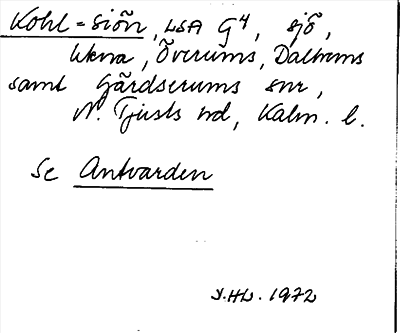 Kohl-siön, LSA G4, sjö,
Ukna, Överums, Dalhems
samt Gärdserums snr,
N. Tjusts hd, Kalm. l.
Se Antvarden
I.HL. 1972